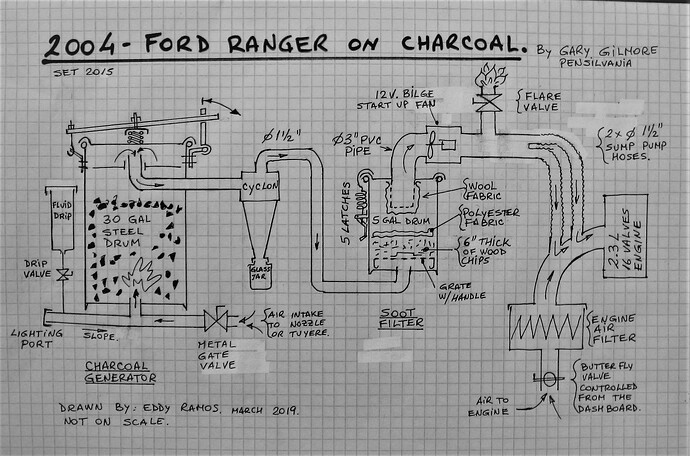 2004 - FORD RANGER ON CHARCOAL.
By GARY GILMORE
PENSILVANIA
SET 2015
12V. BILGE
START UP FAN
FLARE
VALVE
Ø 1 1/2"
Ø3" PVC
PIPE
2 x Ø 1 1/2"
SUMP PUMP
HOSES.
CYCLON
FLUID
DRIP
30 GAL
STEEL
DRUM
5 LATCHES
WOOL
FABRIC
5 GAL DRUM
POLYESTER
FABRIC
6" THICK
OF WOOD
CHIPS
2.3 L
16 VALVES
ENGINE
DRIP
VALVE
GLASS
JAR
GRATE
W/HANDLE
LIGHTING
PORT
SLOPE.
AIR INTAKE
TO NOZZLE
OR TUYERE.
SOOT
FILTER
ENGINE
AIR
FILTER
METAL
GATE
VALVE
CHARCOAL
GENERATOR
BUTTERFLY
VALVE
CONTROLLED
FROM THE
DASHBOARD.
AIR TO
ENGINE
DRAWN BY: EDDY RAMOS, MARCH 2019.
NOT ON SCALE.